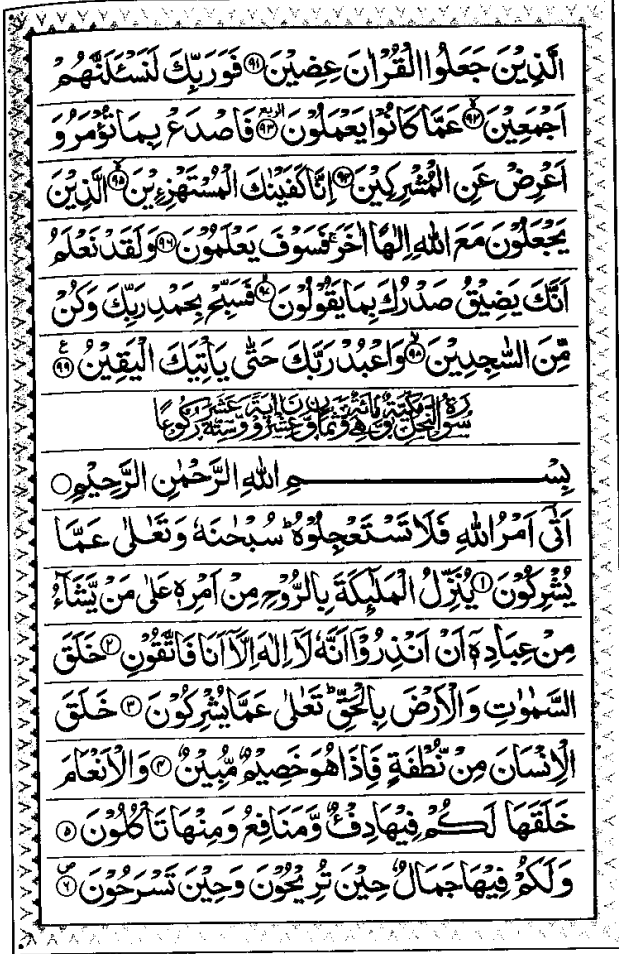 الَّذِيْنَ جَعَلُوا الْقُرْاٰنَ عِضِيْنَ ﴿۹۱﴾ فَوَرَبِّكَ لَنَسْـَٔلَنَّهُمْ
اَجْمَعِيْنَ ۙ﴿۹۲﴾ عَمَّا كَانُوْا يَعْمَلُوْنَ الربع ﴿۹۳﴾ فَاصْدَعْ بِمَا تُؤْمَرُ وَ
اَعْرِضْ عَنِ الْمُشْرِكِيْنَ ﴿۹۴﴾ اِنَّا كَفَيْنٰكَ الْمُسْتَهْزِءِيْنَ ۙ﴿۹۵﴾ الَّذِيْنَ
يَجْعَلُوْنَ مَعَ اللّٰهِ اِلٰهًا اٰخَرَ ۚ فَسَوْفَ يَعْلَمُوْنَ ﴿۹۶﴾ وَلَقَدْ نَعْلَمُ
اَنَّكَ يَضِيْقُ صَدْرُكَ بِمَا يَقُوْلُوْنَ ۙ﴿۹۷﴾ فَسَبِّحْ بِحَمْدِ رَبِّكَ وَكُنْ
مِّنَ السّٰجِدِيْنَ ۙ﴿۹۸﴾ وَاعْبُدْ رَبَّكَ حَتّٰى يَاْتِيَكَ الْيَقِيْنُ ع ﴿۹۹﴾
سُوْرَةُ النَّحْلِ مَكِّيَّةٌ وَّهِيَ مِائَةٌ وَّثَمَانٍ وَّعِشْرُوْنَ اٰيَةً وَّسِتَّةَ عَشَرَ رُكُوْعًا
بِسْــــــمِ اللّٰهِ الرَّحْمٰنِ الرَّحِيْمِ ○
اَتٰٓى اَمْرُ اللّٰهِ فَلَا تَسْتَعْجِلُوْهُ ؕ سُبْحٰنَهٗ وَتَعٰلٰى عَمَّا
يُشْرِكُوْنَ ﴿۱﴾ يُنَزِّلُ الْمَلٰٓئِكَةَ بِالرُّوْحِ مِنْ اَمْرِهٖ عَلٰى مَنْ يَّشَآءُ
مِنْ عِبَادِهٖٓ اَنْ اَنْذِرُوْٓا اَنَّهٗ لَاۤ اِلٰهَ اِلَّاۤ اَنَا فَاتَّقُوْنِ ﴿۲﴾ خَلَقَ
السَّمٰوٰتِ وَالْاَرْضَ بِالْحَقِّ ؕ تَعٰلٰى عَمَّا يُشْرِكُوْنَ ﴿۳﴾ خَلَقَ
الْاِنْسَانَ مِنْ نُّطْفَةٍ فَاِذَا هُوَ خَصِيْمٌ مُّبِيْنٌ ﴿۴﴾ وَالْاَنْعَامَ
خَلَقَهَا لَـكُمْ فِيْهَا دِفْءٌ وَّمَنَافِعُ وَمِنْهَا تَاْكُلُوْنَ ﴿۵﴾
وَلَكُمْ فِيْهَا جَمَالٌ حِيْنَ تُرِيْحُوْنَ وَحِيْنَ تَسْرَحُوْنَ ص ﴿۶﴾